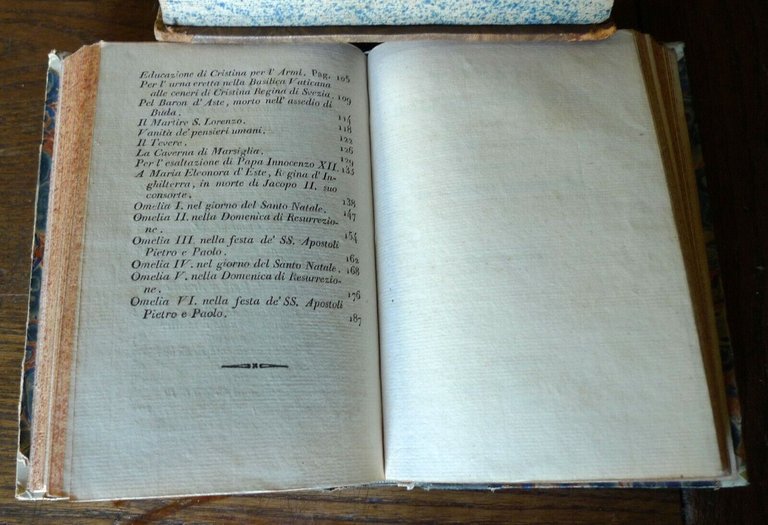 Educazione di Cristina per l' Armi. Pag. 105
Per l' urna eretta nella Basilica Vaticana
alle ceneri di Cristina Regina di Svezia. 109
Pel Baron d' Aste, morto nell' assedio di
Buda. 114
Il Martire S. Lorenzo. 118
Vanità de' pensieri umani. 122
Il Tevere. 126
La Caverna di Marsiglia. 129
Per l' esaltazione di Papa Innocenzo XII. 135
A Maria Eleonora d' Este, Regina d' In-
ghilterra, in morte di Jacopo II. suo
consorte. 138
Omelia I. nel giorno del Santo Natale. 147
Omelia II. nella Domenica di Resurrezio-
ne. 154
Omelia III. nella festa de' SS. Apostoli
Pietro e Paolo. 162
Omelia IV. nel giorno del Santo Natale. 168
Omelia V. nella Domenica di Resurrezio-
ne. 176
Omelia VI. nella festa de' SS. Apostoli
Pietro e Paolo. 187